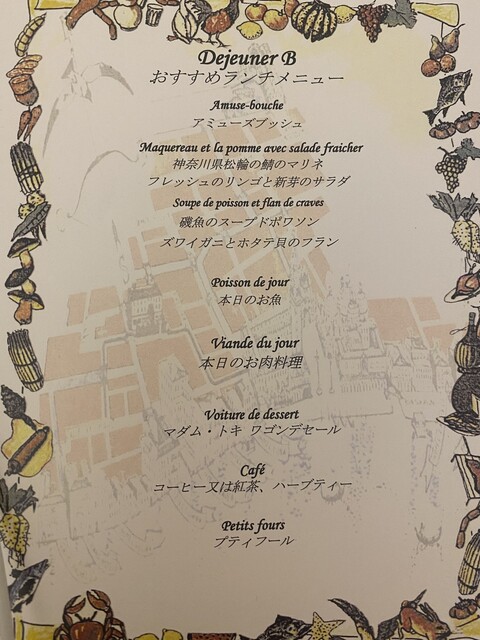 Dejeuner B
おすすめランチメニュー
Amuse-bouche
アミューズブッシュ
Maquereau et la pomme avec salade fraicher
神奈川県松輪の鯖のマリネ
フレッシュのリンゴと新芽のサラダ
Soupe de poisson et flan de craves
磯魚のスープドポワソン
ズワイガニとホタテ貝のフラン
Poisson de jour
本日のお魚
Viande du jour
本日のお肉料理
Voiture de dessert
マダム・トキ ワゴンデセール
Café
コーヒー又は紅茶、ハーブティー
Petits fours
プティフール